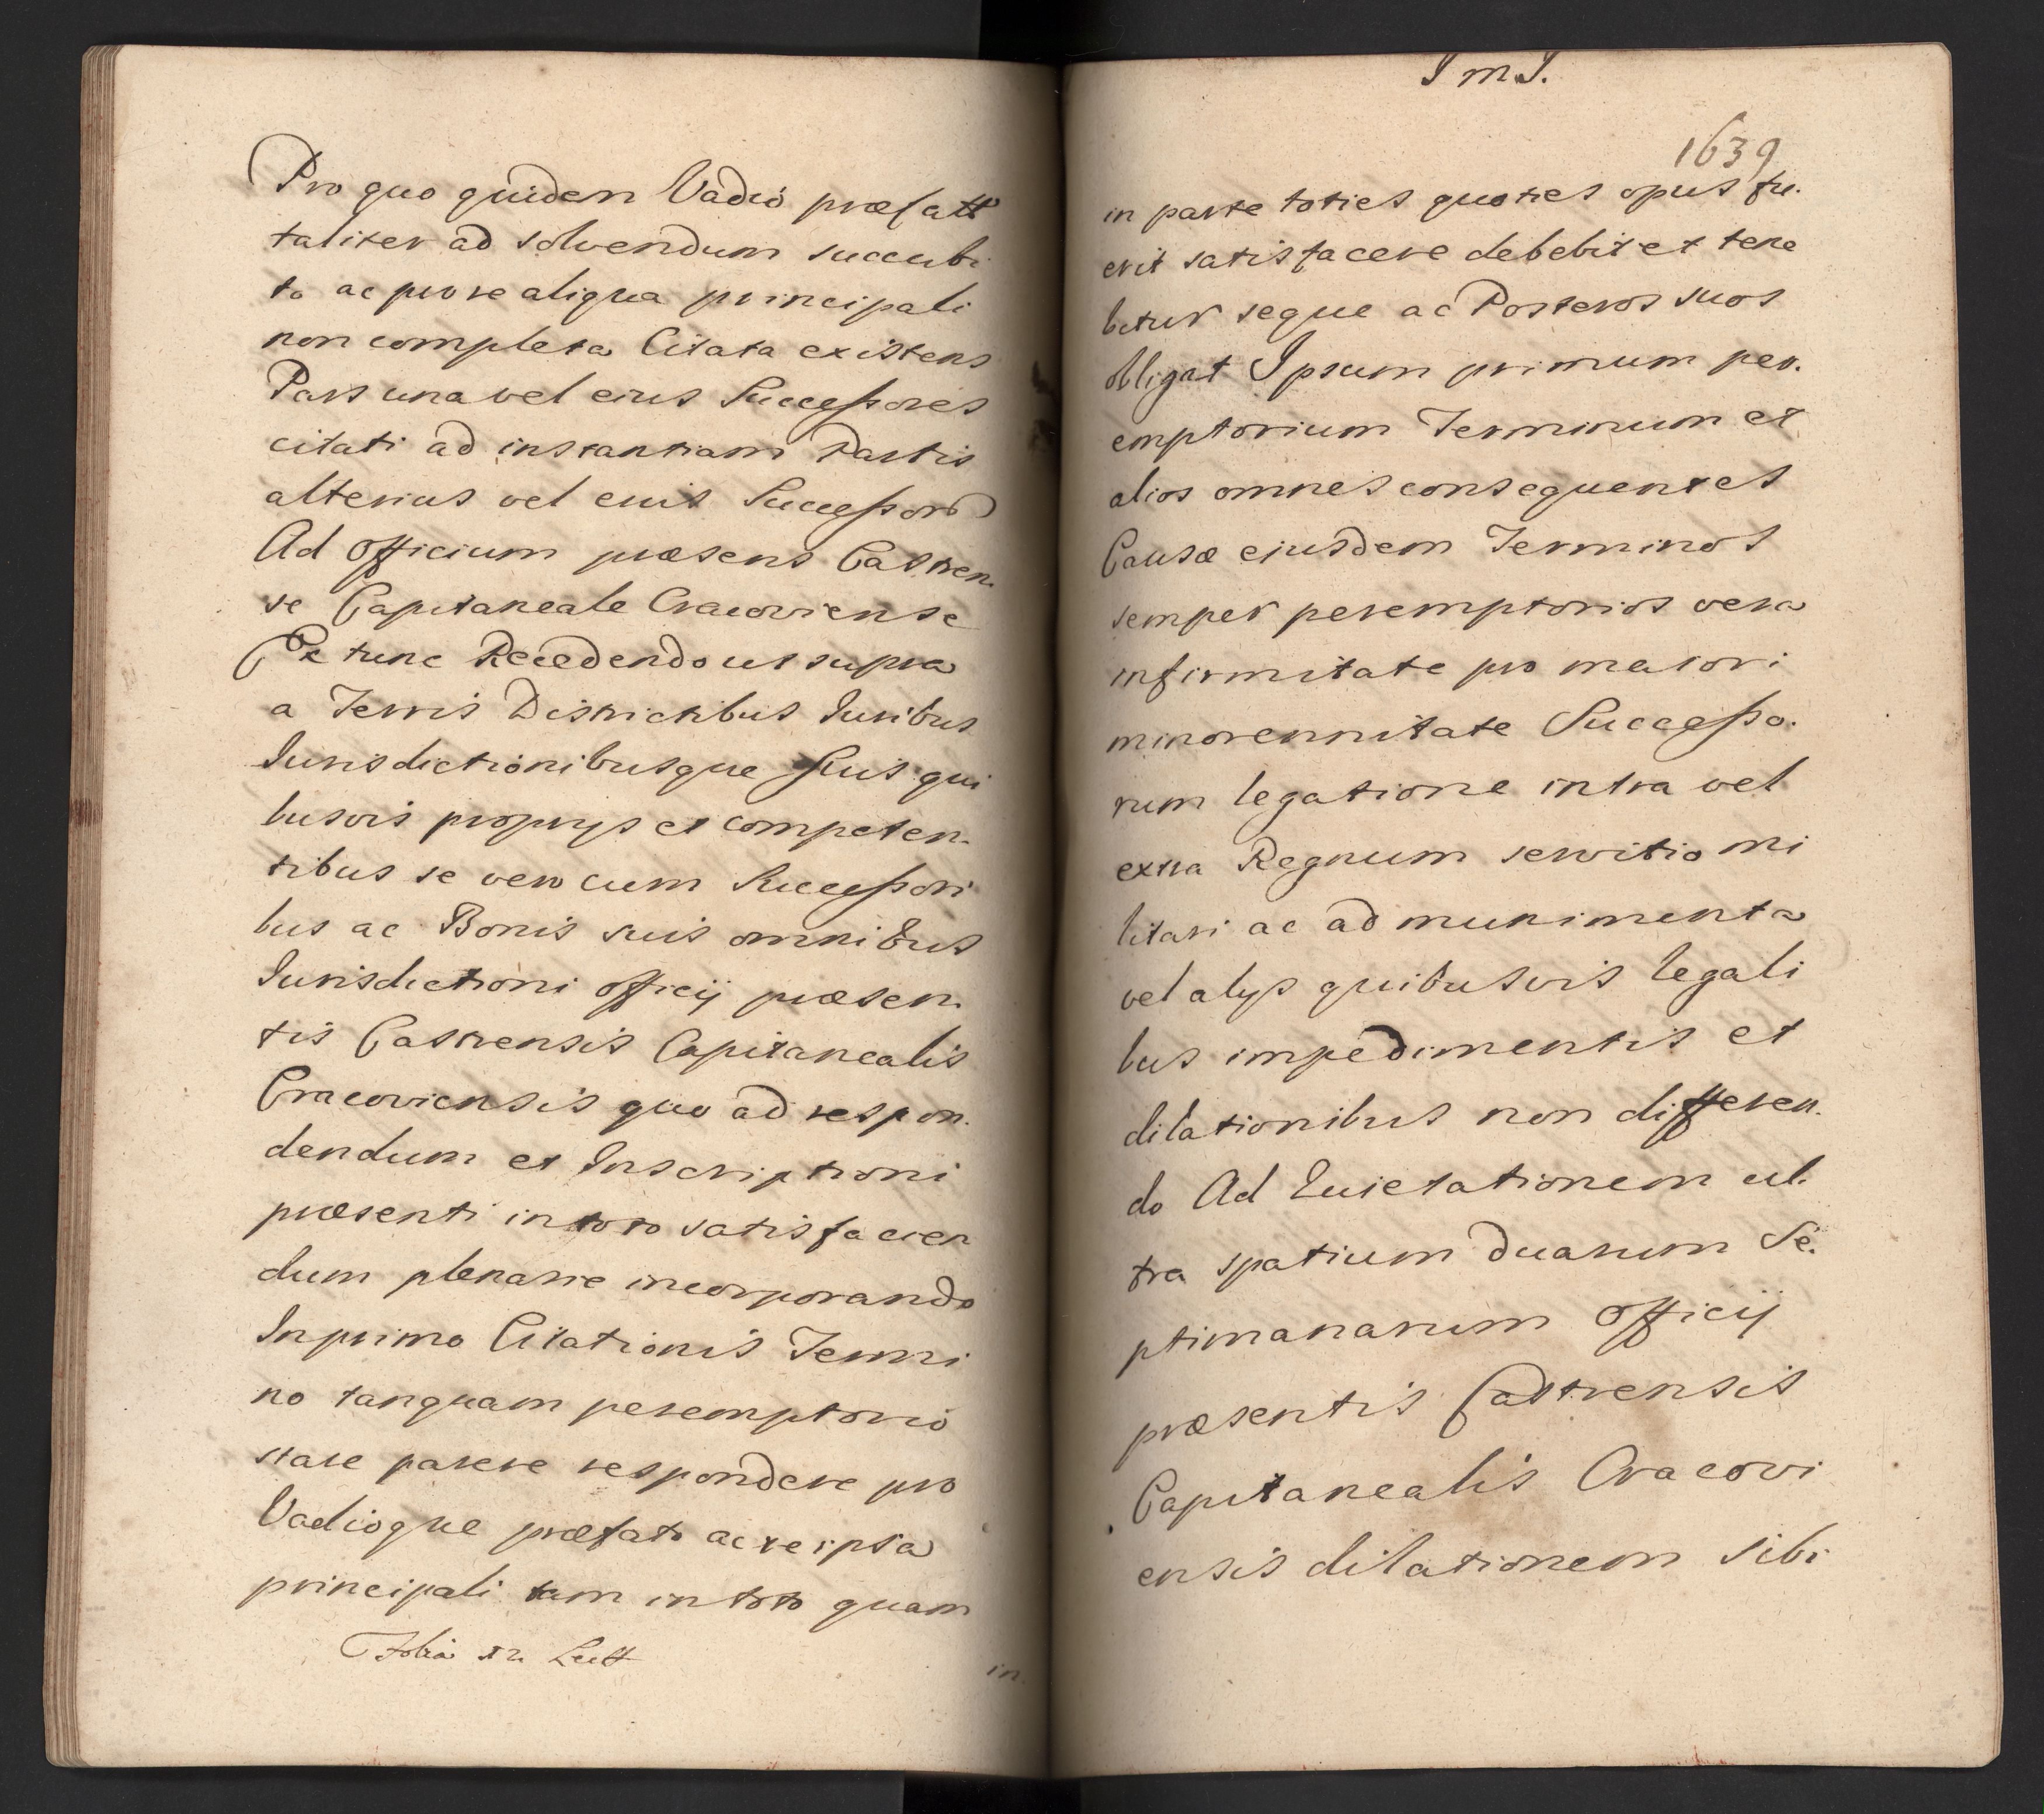 Pro quo quidem Vadio præfatt
taliter ad solvendum succubi
to ac pro re aliqua principali
non completa Citata existens
Pars una vel eius Successores
citati ad instantiam Partis
alterius vel eius Successorũ
Ad officium præsens Castren.
se Capitaneale Cracoviense
Ex tunc Recedendo ut supra
a Terris Districtibus Juribus
Jurisdictionibusque Suis qui
busvis proprys et competen.
tibus se vero cum Successori
bus ac Bonis suis omnibus
Jurisdictioni officij præsen.
tis Castrensis Capitanealis
Cracoviensis quo ad respon.
dendum et Inscriptioni
præsenti in toto satisfacien
dum plenarie incorporando
In primo Citationis Termi
no tanquam peremptorio
stare parere respondere pro
Vadioque præfato ac re ipsa
principali tam in toto quam
in
J m J.
1639
in parte toties quoties opus fu.
erit satisfacere debebit et tene
bitur seque ac Posteros suos
obligat Ipsum primum per.
emptorium Terminum et
alios omnes consequentes
Causæ eiusdem Terminos
semper peremptorios vera
infirmitate pro maiori
minorennitate Successo.
rum legatione intra vel
extra Regnum servitio mi
litari ac ad munimenta
vel alys quibusvis legali
bus impedimentis et
dilationibus non differen.
do Ad Quietationem ul.
tra spatium duarum Se.
ptimanarum officij
præsentis Castrensis
Capitanealis Cracovi
ensis dilationem sibi